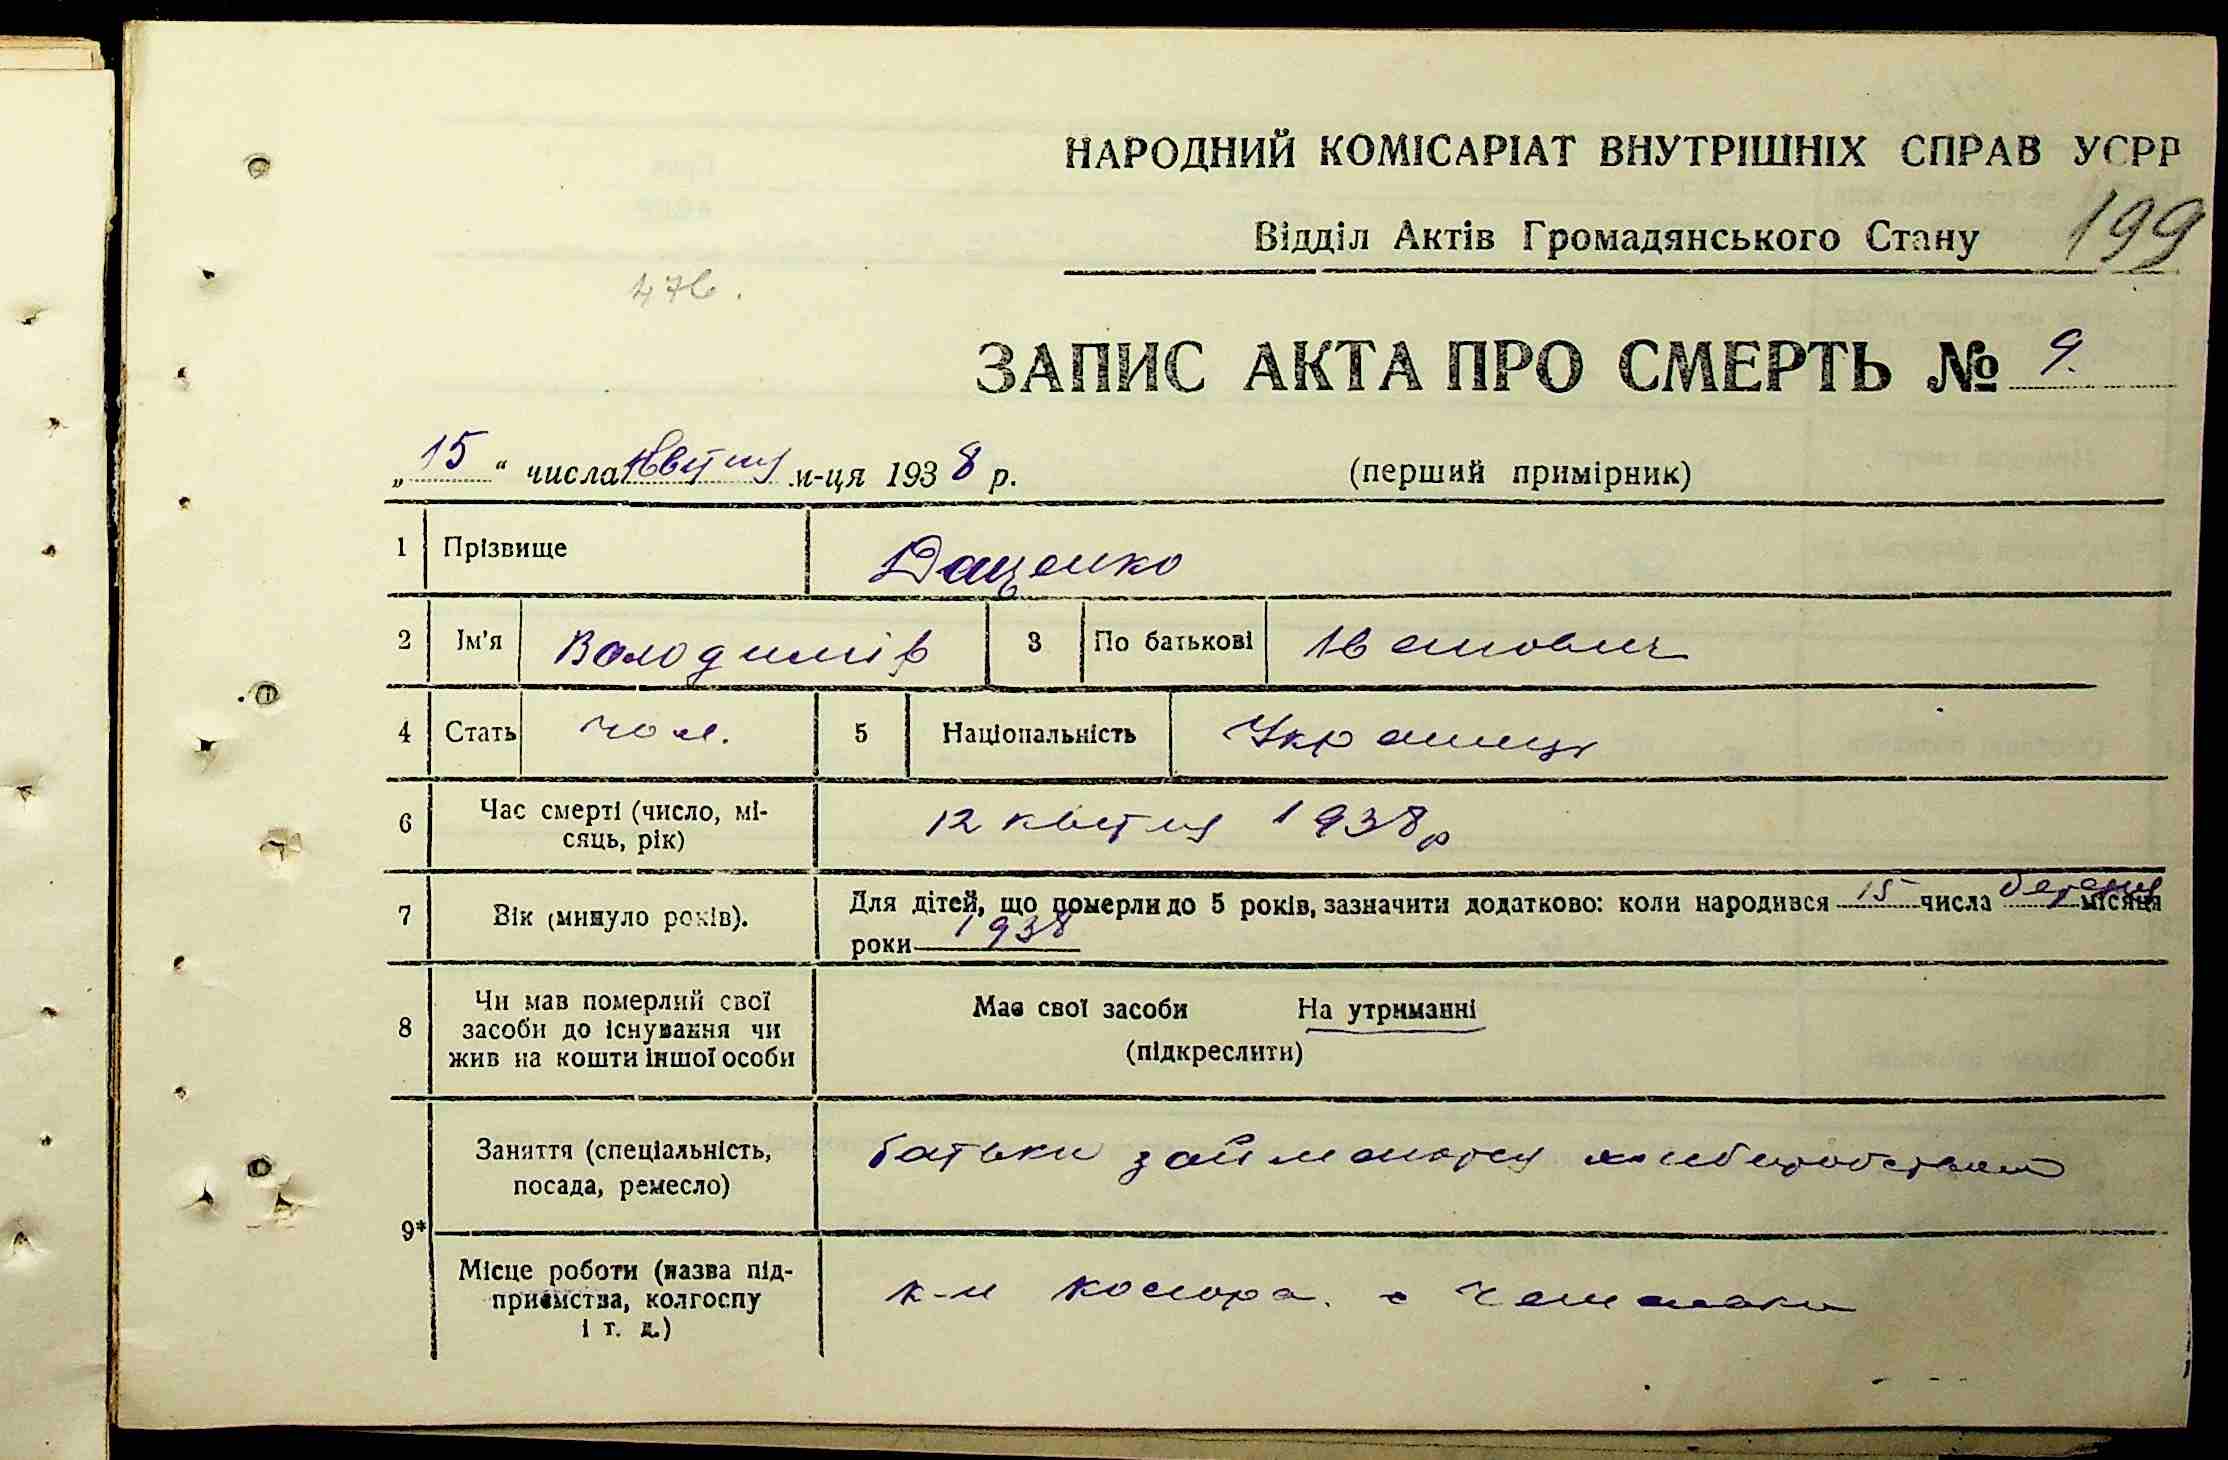 НАРОДНИЙ КОМІСАРІАТ ВНУТРІШНІХ СПРАВ УСРР
Відділ Актів Громадянського Стану 199
ЗАПИС АКТА ПРО СМЕРТЬ № 9.
„15“ числа квітня м-ця 1938 р. (перший примірник)
1 Прізвище Даценко
2 Ім'я Володимір 3 По батькові Іванович
4 Стать чол. 5 Національність Українець
6 Час смерті (число, мі-
сяць, рік) 12 квітня 1938 р
7 Вік (минуло років). Для дітей, що померли до 5 років, зазначити додатково: коли народився 15 числа березня місяця
роки 1938
8 Чи мав померлий свої
засоби до існування чи
жив на кошти іншої особи
Має свої засоби На утриманні
(підкреслити)
9* Заняття (спеціальність,
посада, ремесло)
батьки займаються хліборобством
Місце роботи (назва під-
приємства, колгоспу
і т. д.)
к-п Косіора. с